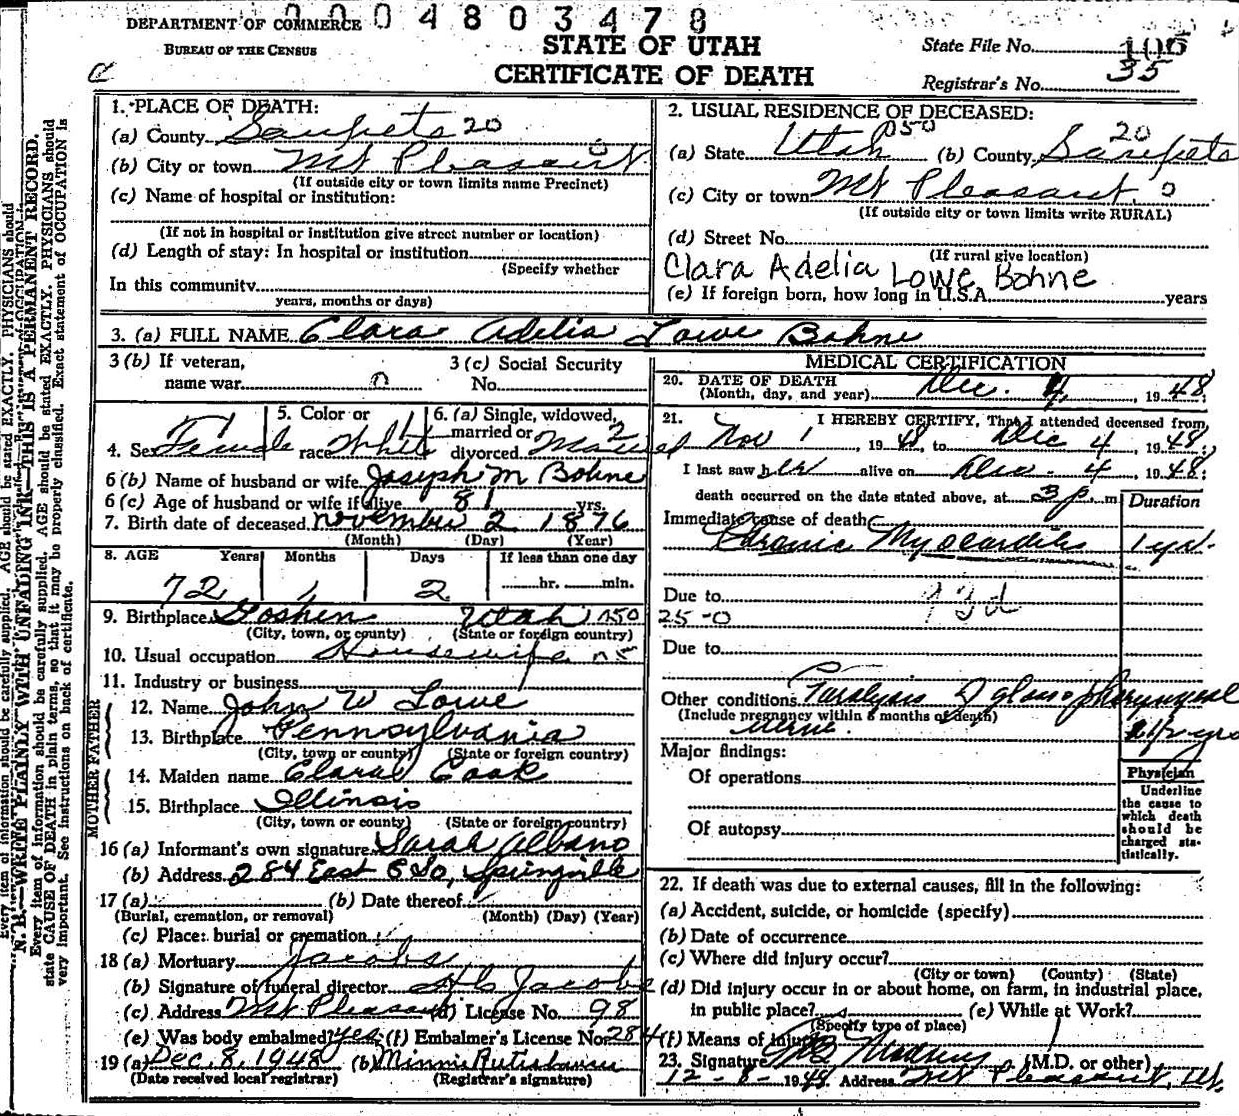 0004803478
DEPARTMENT OF COMMERCE
BUREAU OF THE CENSUS
STATE OF UTAH
CERTIFICATE OF DEATH
State File No. 106
Registrar's No. 35
1. PLACE OF DEATH:
(a) County Sanpete 20
(b) City or town Mt Pleasant 0
(If outside city or town limits name Precinct)
(c) Name of hospital or institution:
(If not in hospital or institution give street number or location)
(d) Length of stay: In hospital or institution
(Specify whether
In this community
years, months or days)
2. USUAL RESIDENCE OF DECEASED:
(a) State Utah 050 (b) County Sanpete 20
(c) City or town Mt Pleasant 0
(If outside city or town limits write RURAL)
(d) Street No.
(If rural give location)
Clara Adelia Lowe Bohne
(e) If foreign born, how long in U.S.A. years
3. (a) FULL NAME Clara Adelia Lowe Bohne
3 (b) If veteran,
name war 0
3 (c) Social Security
No.
4. Sex Female
5. Color or
race White
6. (a) Single, widowed,
married or
divorced Married 2
6 (b) Name of husband or wife Joseph M Bohne
6 (c) Age of husband or wife if alive 81 yrs.
7. Birth date of deceased November 2 1876
(Month) (Day) (Year)
8. AGE Years Months Days If less than one day
72 1 2 hr. min.
9. Birthplace Goshen Utah 050
(City, town, or county) (State or foreign country)
10. Usual occupation Housewife
11. Industry or business
FATHER
12. Name John W Lowe
13. Birthplace Pennsylvania
(City, town or county) (State or foreign country)
MOTHER
14. Maiden name Clara Cook
15. Birthplace Illinois
(City, town or county) (State or foreign country)
16 (a) Informant's own signature Sarah Albano
(b) Address 284 East 8 So, Springville
17 (a) (b) Date thereof
(Burial, cremation, or removal) (Month) (Day) (Year)
(c) Place: burial or cremation
18 (a) Mortuary Jacobs
(b) Signature of funeral director Jacobs
(c) Address Mt Pleasant (d) License No. 98
(e) Was body embalmed? yes (f) Embalmer's License No. 284
19 (a) Dec. 8, 1948 (b) Minnie
(Date received local registrar) (Registrar's signature)
MEDICAL CERTIFICATION
20. DATE OF DEATH
(Month, day, and year) Dec. 4, 1948
21. I HEREBY CERTIFY, That I attended deceased from
Nov 1 1948, to Dec 4 1948
I last saw her alive on Dec. 4 1948
death occurred on the date stated above, at 3 p. m.
Duration
Immediate cause of death
Chronic Myocarditis 1 yr.
Due to 93d
25-0
Due to
Other conditions Paralysis of glossopharyngeal
(Include pregnancy within 6 months of death)
nerve. 2 1/2 yrs
Major findings:
Of operations
Of autopsy
Physician
Underline
the cause to
which death
should be
charged sta-
tistically.
22. If death was due to external causes, fill in the following:
(a) Accident, suicide, or homicide (specify)
(b) Date of occurrence
(c) Where did injury occur?
(City or town) (County) (State)
(d) Did injury occur in or about home, on farm, in industrial place,
in public place? (e) While at Work?
(Specify type of place)
(f) Means of injury
23. Signature (M.D. or other)
12-8-1948 Address Mt Pleasant, Ut.
N. B.—WRITE PLAINLY WITH UNFADING INK—THIS IS A PERMANENT RECORD.
Every item of information should be carefully supplied. AGE should be stated EXACTLY. PHYSICIANS should
state CAUSE OF DEATH in plain terms, so that it may be properly classified. Exact statement of OCCUPATION is
very important. See instructions on back of certificate.